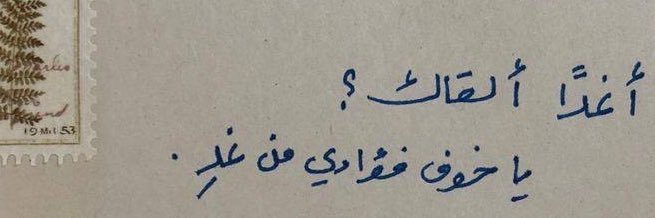 أغدًا ألقاك؟
يا خوف فؤادي من غدِ.
19 Mil 53